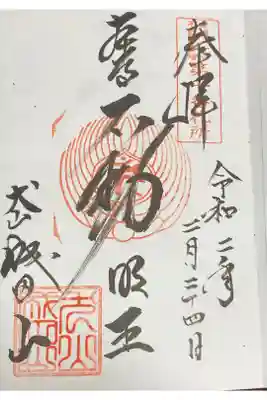 奉拝
令和二年
二月二十四日
不動明王
犬山成田山